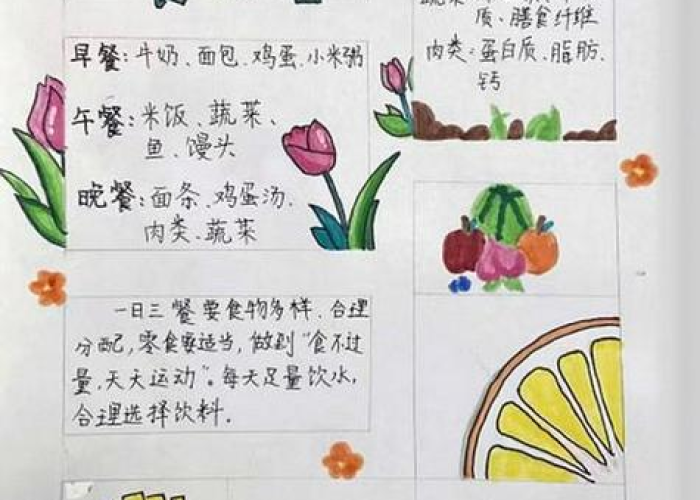 早餐:牛奶、面包、鸡蛋、小米粥
午餐:米饭、蔬菜、
鱼、馒头
晚餐:面条、鸡蛋汤、
肉类、蔬菜
质、膳食纤维
肉类:蛋白质、脂肪、
钙
一日三餐要食物多样、合理
分配,零食要适当,做到“食不过
量,天天运动”。每天足量饮水,
合理选择饮料.